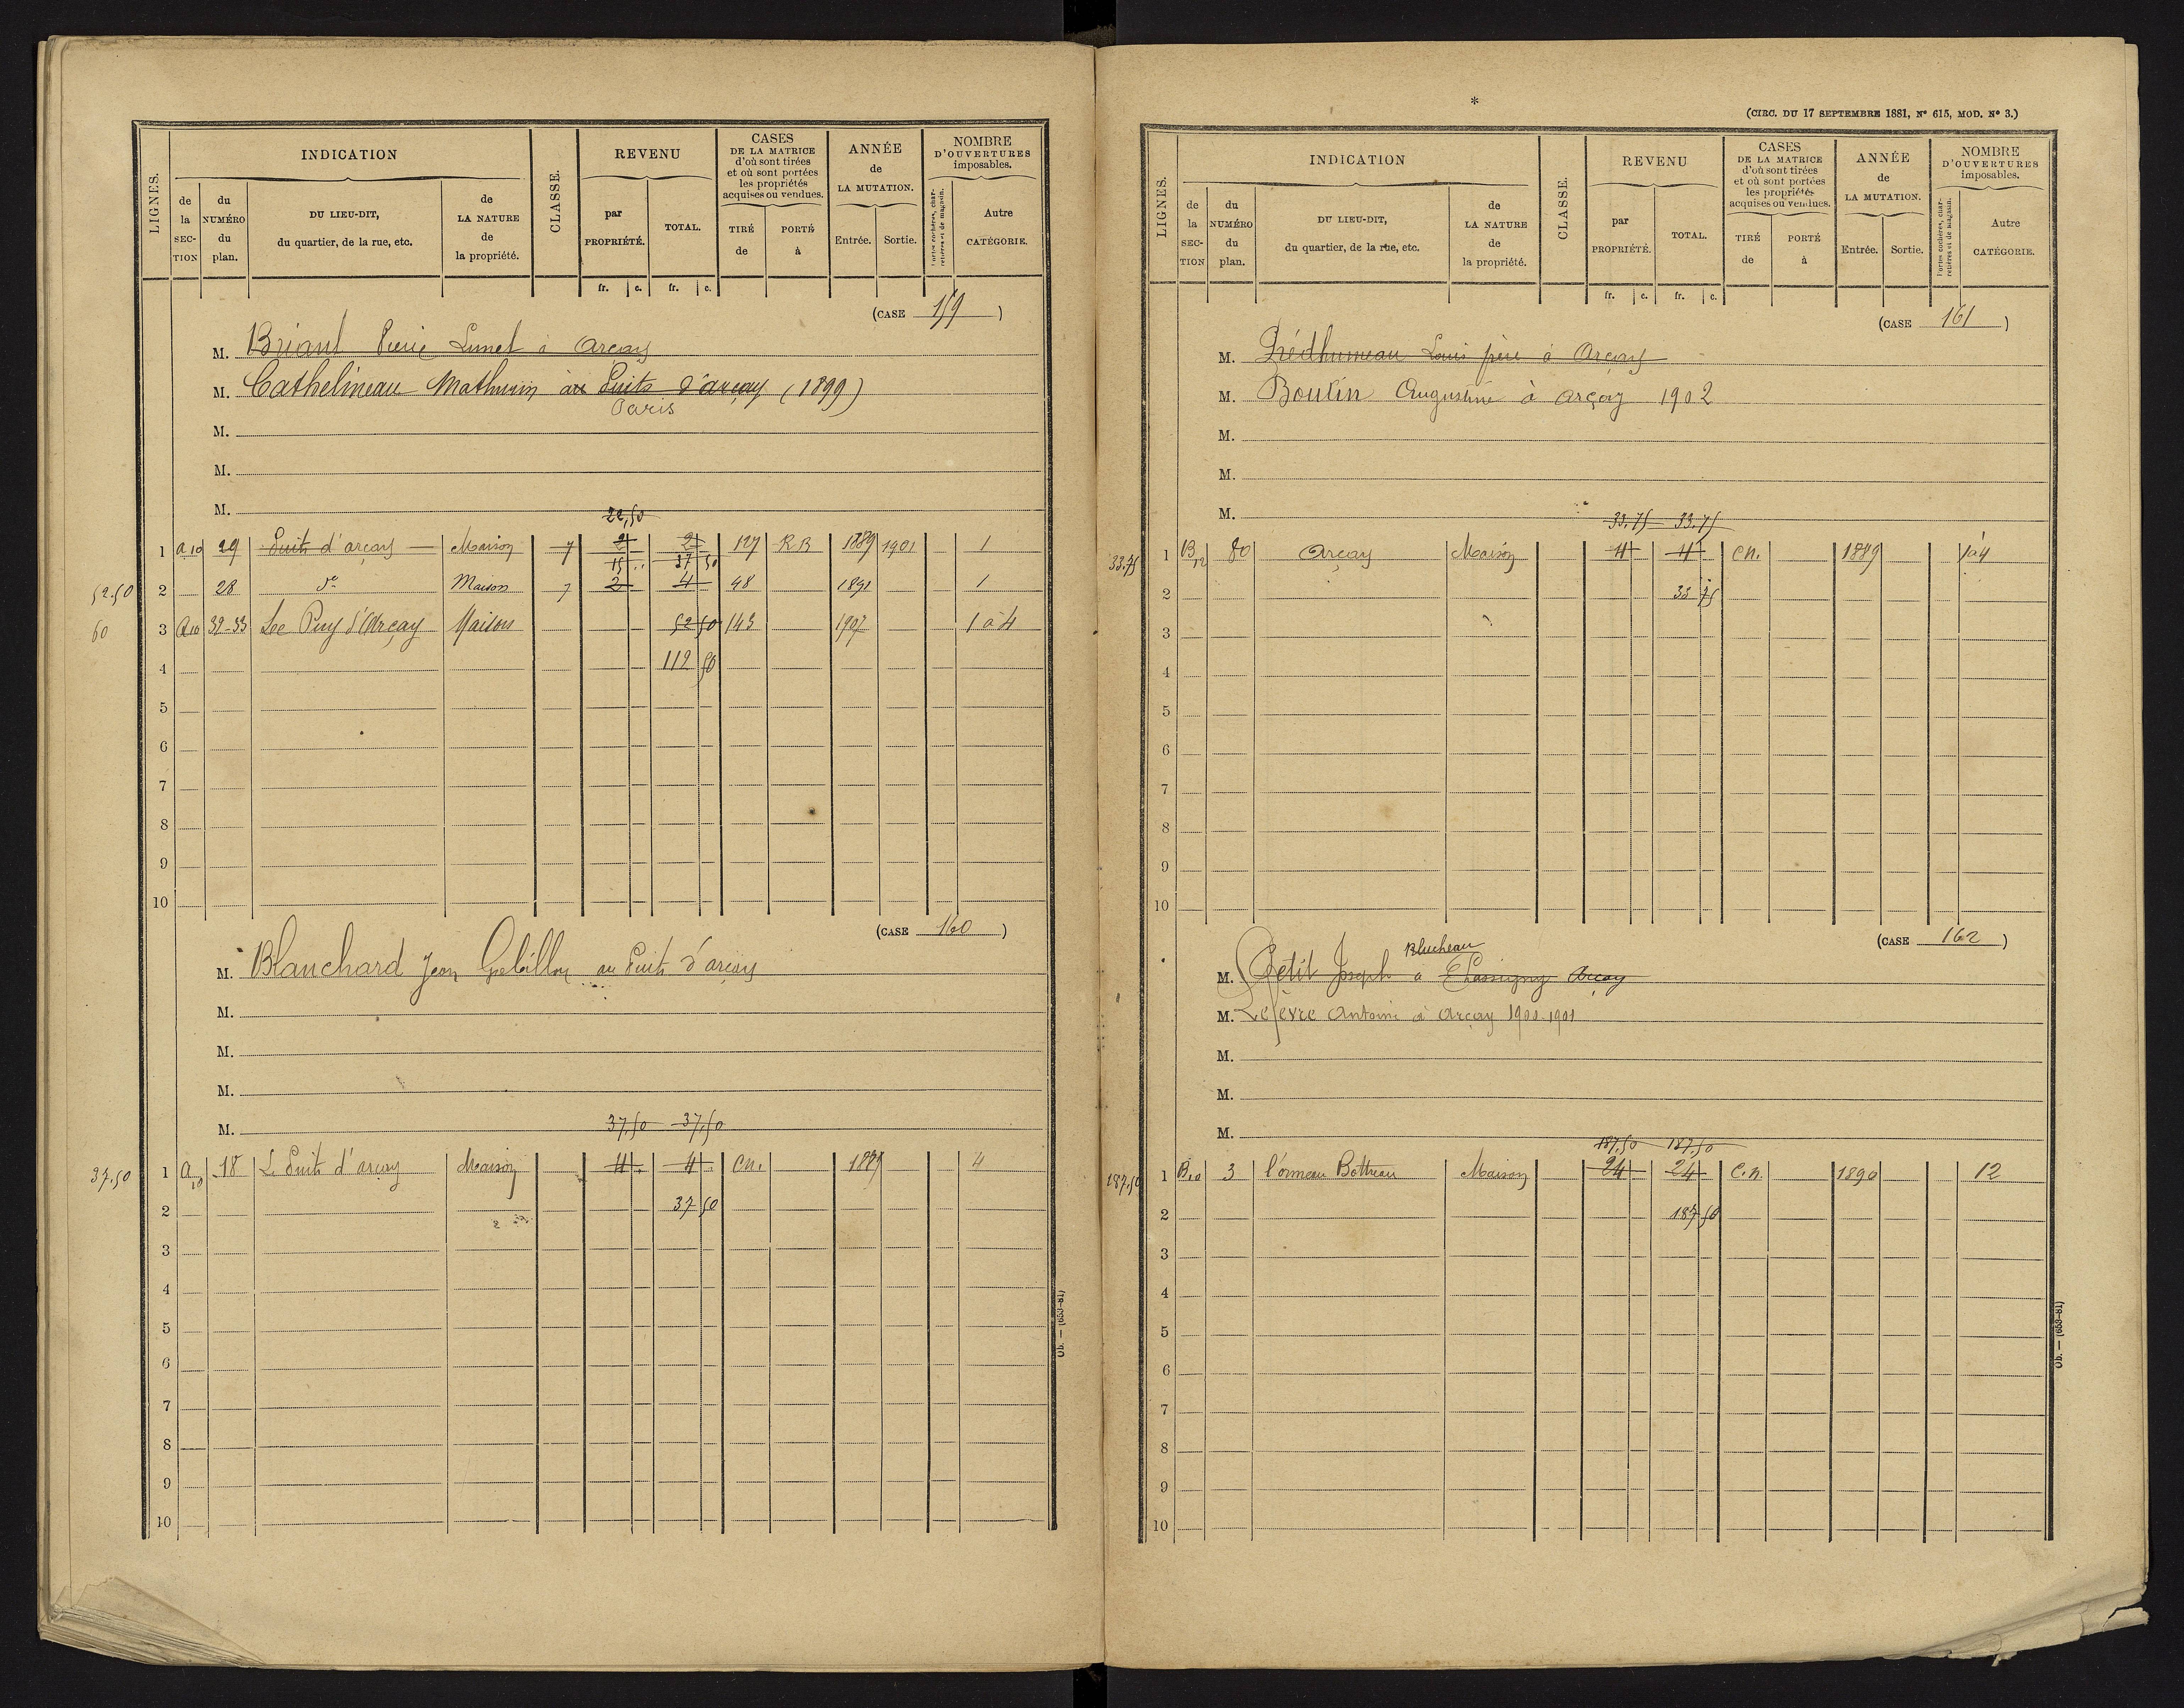 LIGNES.
INDICATION
de la SECTION
du NUMÉRO du plan.
DU LIEU-DIT, du quartier, de la rue, etc.
de LA NATURE de la propriété.
CLASSE.
REVENU
par PROPRIÉTÉ.
TOTAL.
CASES DE LA MATRICE d'où sont tirées et où sont portées les propriétés acquises ou vendues.
TIRÉ de
PORTÉ à
ANNÉE de LA MUTATION.
Entrée.
Sortie.
NOMBRE D'OUVERTURES imposables.
Portes cochères, charretières et de magasin.
Autre CATÉGORIE.
fr. c. fr. c.
(CASE 159 )
M. Briant Pierre Limet à Arçay
M. Cathelineau Mathurin au Puits d'arçay (1899)
Paris
M.
M.
M.
22,50
1 A 10 29 Puits d'arçay Maison 7 2 2 127 R.B 1889 1901 1
15 37 50
52.50 2 28 do Maison 7 2 4 48 1891 1
60 3 A10 32-33 Le Puy d'Arçay Maison 52 50 143 1907 1 à 4
4 112 50
5
6
7
8
9
10
(CASE 160 )
M. Blanchard Jean Gobillon au Puits d'arçay
M.
M.
M.
M.
37,50 37,50
37.50 1 A 10 18 Le Puits d'arçay Maison 4 4 C.N. 1889 4
2 37 50
3
4
5
6
7
8
9
10
Ob. — (653-81)
*
(CIRC. DU 17 SEPTEMBRE 1881, N° 615, MOD. N° 3.)
LIGNES.
INDICATION
de la SECTION
du NUMÉRO du plan.
DU LIEU-DIT, du quartier, de la rue, etc.
de LA NATURE de la propriété.
CLASSE.
REVENU
par PROPRIÉTÉ.
TOTAL.
CASES DE LA MATRICE d'où sont tirées et où sont portées les propriétés acquises ou vendues.
TIRÉ de
PORTÉ à
ANNÉE de LA MUTATION.
Entrée.
Sortie.
NOMBRE D'OUVERTURES imposables.
Portes cochères, charretières et de magasin.
Autre CATÉGORIE.
fr. c. fr. c.
(CASE 161 )
M. Prédhumeau Louis père à Arçay
M. Boutin Augustine à arçay 1902
M.
M.
M.
33.75 33.75
33.75 1 B 12 80 Arçay Maison 4 4 C.N. 1889 1 à 4
2 33 75
3
4
5
6
7
8
9
10
(CASE 162 )
Blucheau
M. Petit Joseph à Chassigny Arçay
M. Lefèvre Antoine à Arçay 1900-1901
M.
M.
M.
187,50 187,50
187.50 1 B10 3 l'ormeau Bottreau Maison 24 24 C.N. 1890 12
2 187 50
3
4
5
6
7
8
9
10
Ob. — (653-81)